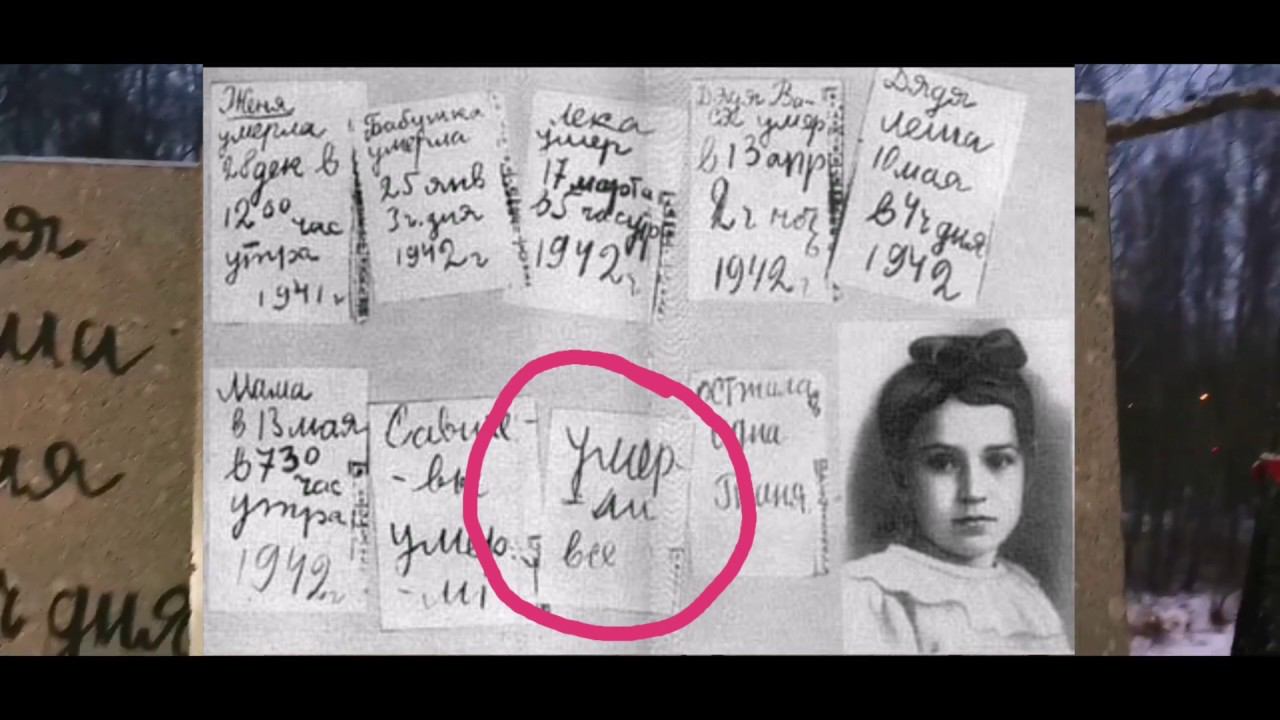 Женя
умерла
28 ден в
12 00 час
утра
1941 г
Бабушка
умерла
25 янв
3 ч. дня
1942 г
Лека
умер
17 марта
в 5 час утр
1942 г
Дядя Ва-
ся умер
в 13 апр
2 ч ноч
1942 г
Дядя
Леша
10 мая
в 4 ч дня
1942
Мама
в 13 мая
в 7 30
час
утра
1942 г
Савиче
-вы
умер
-ли
умер
-ли
все
осталась
одна
Таня
ч дня